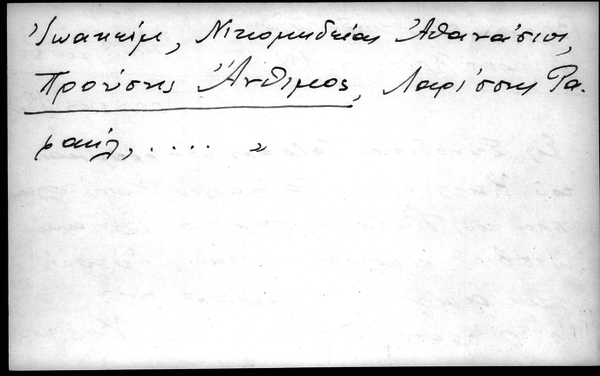 Ἰωακείμ, Νικομηδείας Ἀθανάσιος,
Προύσης Ἄνθιμος, Λαρίσσης Ρα-
φαήλ, .... »